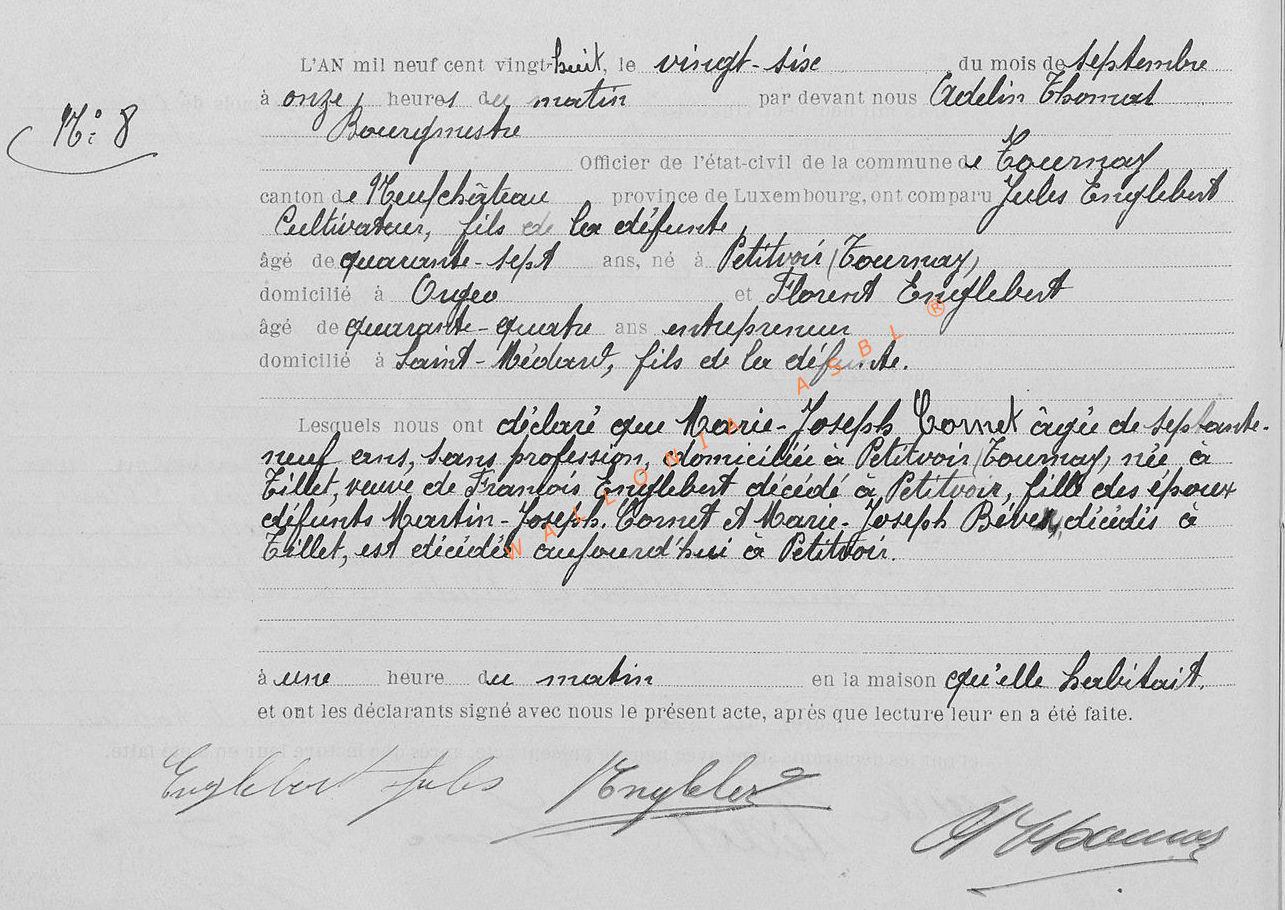 L'AN mil neuf cent vingt-huit, le vingt-six du mois de septembre
à onze heures du matin par devant nous Adelin Thomas
N° 8
Bourgmestre
Officier de l'état-civil de la commune de Tournay
canton de Neufchâteau province de Luxembourg, ont comparu Jules Englebert
Cultivateur, fils de la défunte,
âgé de quarante-sept ans, né à Petitvoir (Tournay)
domicilié à Orgeo et Florent Englebert
âgé de quarante-quatre ans entrepreneur
domicilié à Saint-Médard, fils de la défunte.
Lesquels nous ont déclaré que Marie-Joseph Cornet âgée de septante-
neuf ans, sans profession, domiciliée à Petitvoir (Tournay) née à
Tillet, veuve de François Englebert décédé à Petitvoir, fille des époux
défunts Martin-Joseph Cornet et Marie-Joseph Bévet, décédés à
Tillet, est décédée aujourd'hui à Petitvoir.
à une heure du matin en la maison qu'elle habitait.
et ont les déclarants signé avec nous le présent acte, après que lecture leur en a été faite.
Englebert Jules
A Thomas
WALLONIA ASBL ®